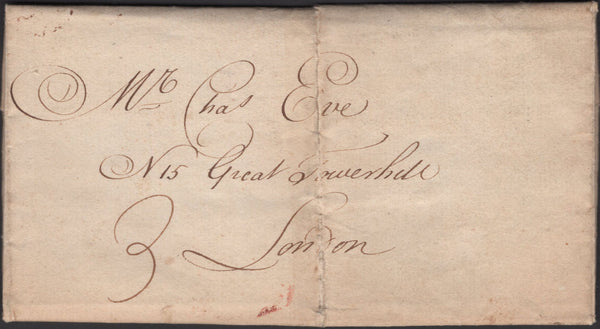 Mr Chas Eve
N 15 Great Towerhill
3 London